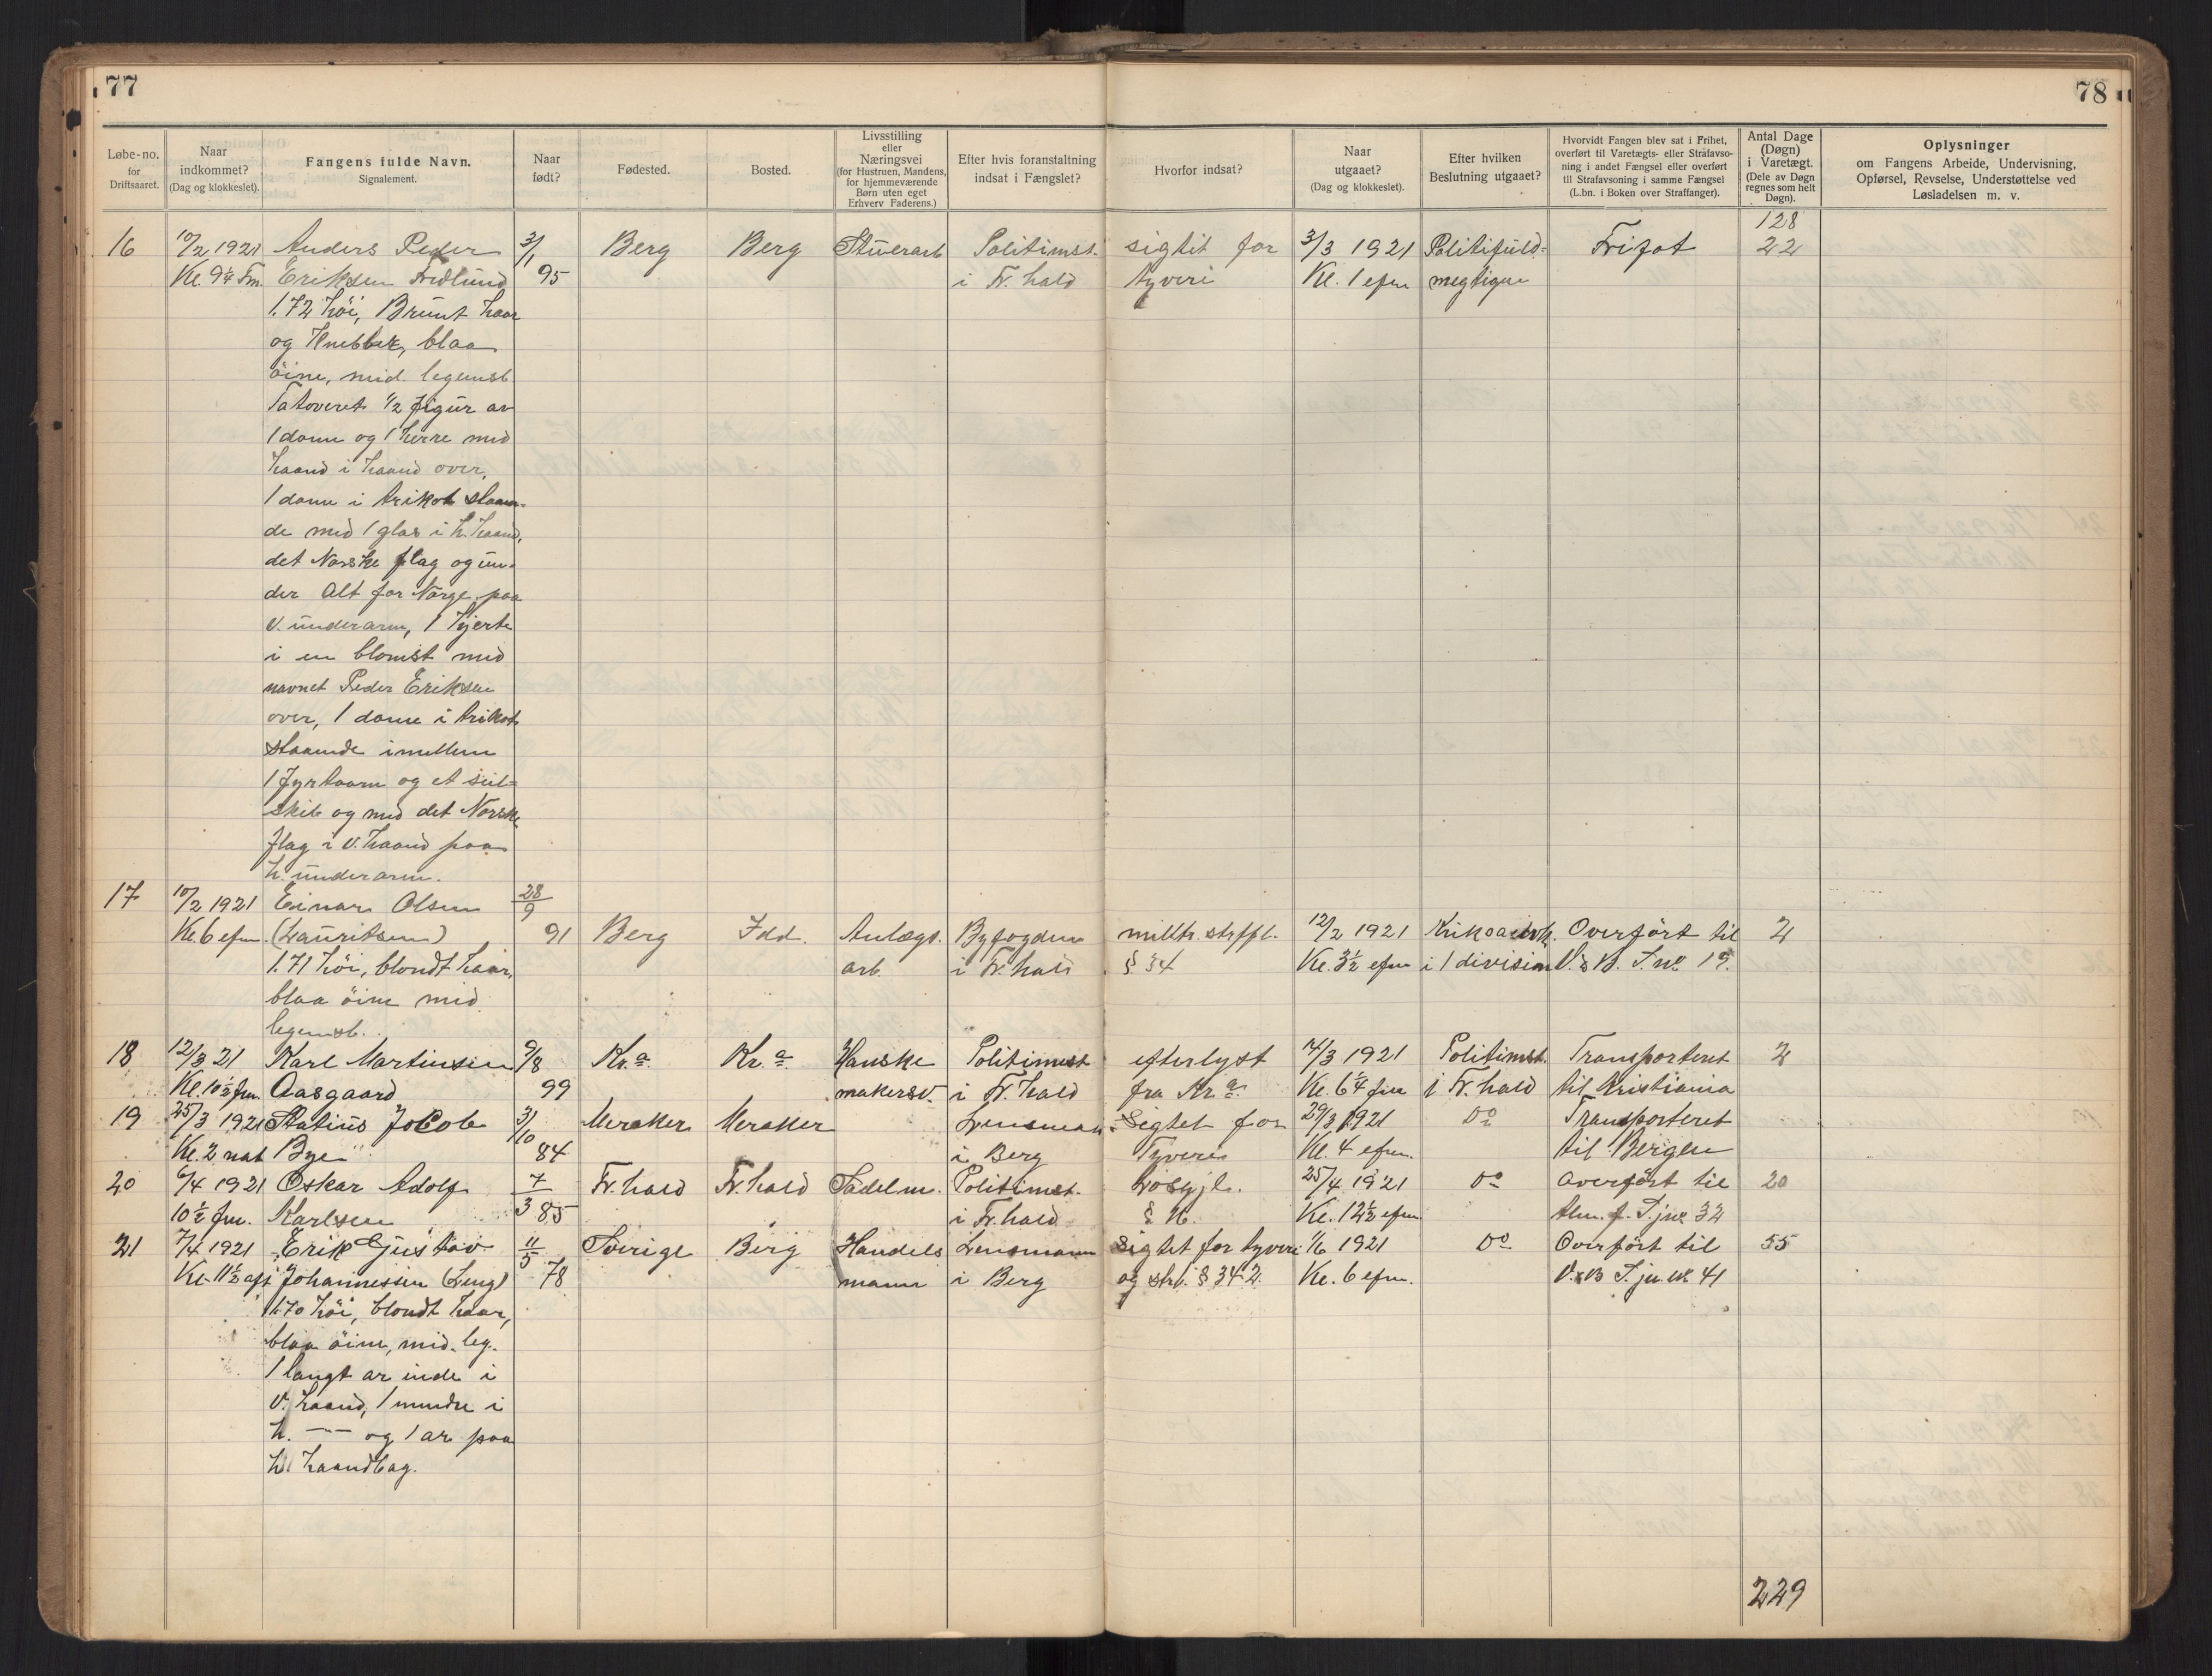 77
78
Løbe-no. for Driftsaaret.
Naar indkommet? (Dag og klokkeslet).
Fangens fulde Navn. Signalement.
Naar født?
Fødested.
Bosted.
Livsstilling eller Næringsvei (for Hustruen, Mandens, for hjemmeværende Børn uten eget Erhverv Faderens.)
Efter hvis foranstaltning indsat i Fængslet?
Hvorfor indsat?
Naar utgaaet? (Dag og klokkeslet).
Efter hvilken Beslutning utgaaet?
Hvorvidt Fangen blev sat i Frihet, overført til Varetægts- eller Strafavsoning i andet Fængsel eller overført til Strafavsoning i samme Fængsel (L.bn. i Boken over Straffanger).
Antal Dage (Døgn) i Varetægt. (Dele av Døgn regnes som helt Døgn).
Oplysninger om Fangens Arbeide, Undervisning, Opførsel, Revselse, Understøttelse ved Løsladelsen m. v.
128
16 10/2 1921 Anders Peder 3/1 Berg Berg Stuerarb Politimst. sigtit for 3/3 1921 Politifuld- Frifot 22
Kl. 9¼ Fm. Eriksen 95 i Fr.hald tyveri Kl. 1 efm megtigen
1.72 høi, Brunt haar
og Knebber, blaa
øine, mid. legemsb
Tatoveret ½ figur av
1 dame og 1 herre med
haand i haand over,
1 dame i trikot staaen-
de med 1 glas i h. haand,
det Norske flag og un-
der Alt for Norge paa
v. underarm, 1 hjerte
i en blomst med
navnet Peder Eriksen
over, 1 dame i trikot
staaende imellem
1 Fyrtaarn og et seil-
skib og med det Norske
flag i v. haand paa
h. underarm.
17 10/2 1921 Einar Olsen 28/9
Kl. 6 efm. (Lauritsen) 91 Berg Idd. Anlægs. Byfogden militr. strfpl. 12/2 1921 Overført til 2
1.71 høi, blondt haar, arb. i Fr.hald § 34 Kl. 3½ efm i 1 division V. & B. F. no 19.
blaa øine mid.
legemsb.
18 12/3 21 Karl Martinsen 9/8 Kr.a Kr.a Hanske Politimest efterlyst 14/3 1921 Politimst. Transporteret 2
Kl. 10½ fm. Aasgaard 99 makersv. i Fr.hald fra Kr.a Kl. 6¼ fm i Fr.hald til Kristiania
19 25/3 1921 Statius Jocob 31/10 Meraker Meraker Lensman Sigtet for 29/3 1921 Do Transporteret
Kl. 2 nat Bye 84 i Berg Tyveri Kl. 4 efm. til Bergen
20 6/4 1921 Oskar Adolf 7/3 Fr.hald Fr.hald Sadelm. Politimst. Løsgjl. 25/4 1921 Do Overført til 20
10½ fm. Karlsen 85 i Fr.hald § 16. Kl. 12½ efm. 32
21 7/4 1921 Erik Gustav 11/5 Sverige Berg Handels Lensmann Sigtet for tyveri 1/6 1921 Do Overført til 55
Kl. 11½ Johannessen (Leng) 78 mann i Berg og strl. § 342. Kl. 6 efm. V. & B F. jn. no 41
1.70 høi, blondt haar,
blaa øine, mid. leg.
1 langt ar inde i
v. haand, 1 mindre i
h. — og 1 ar paa
h haandbag.
229